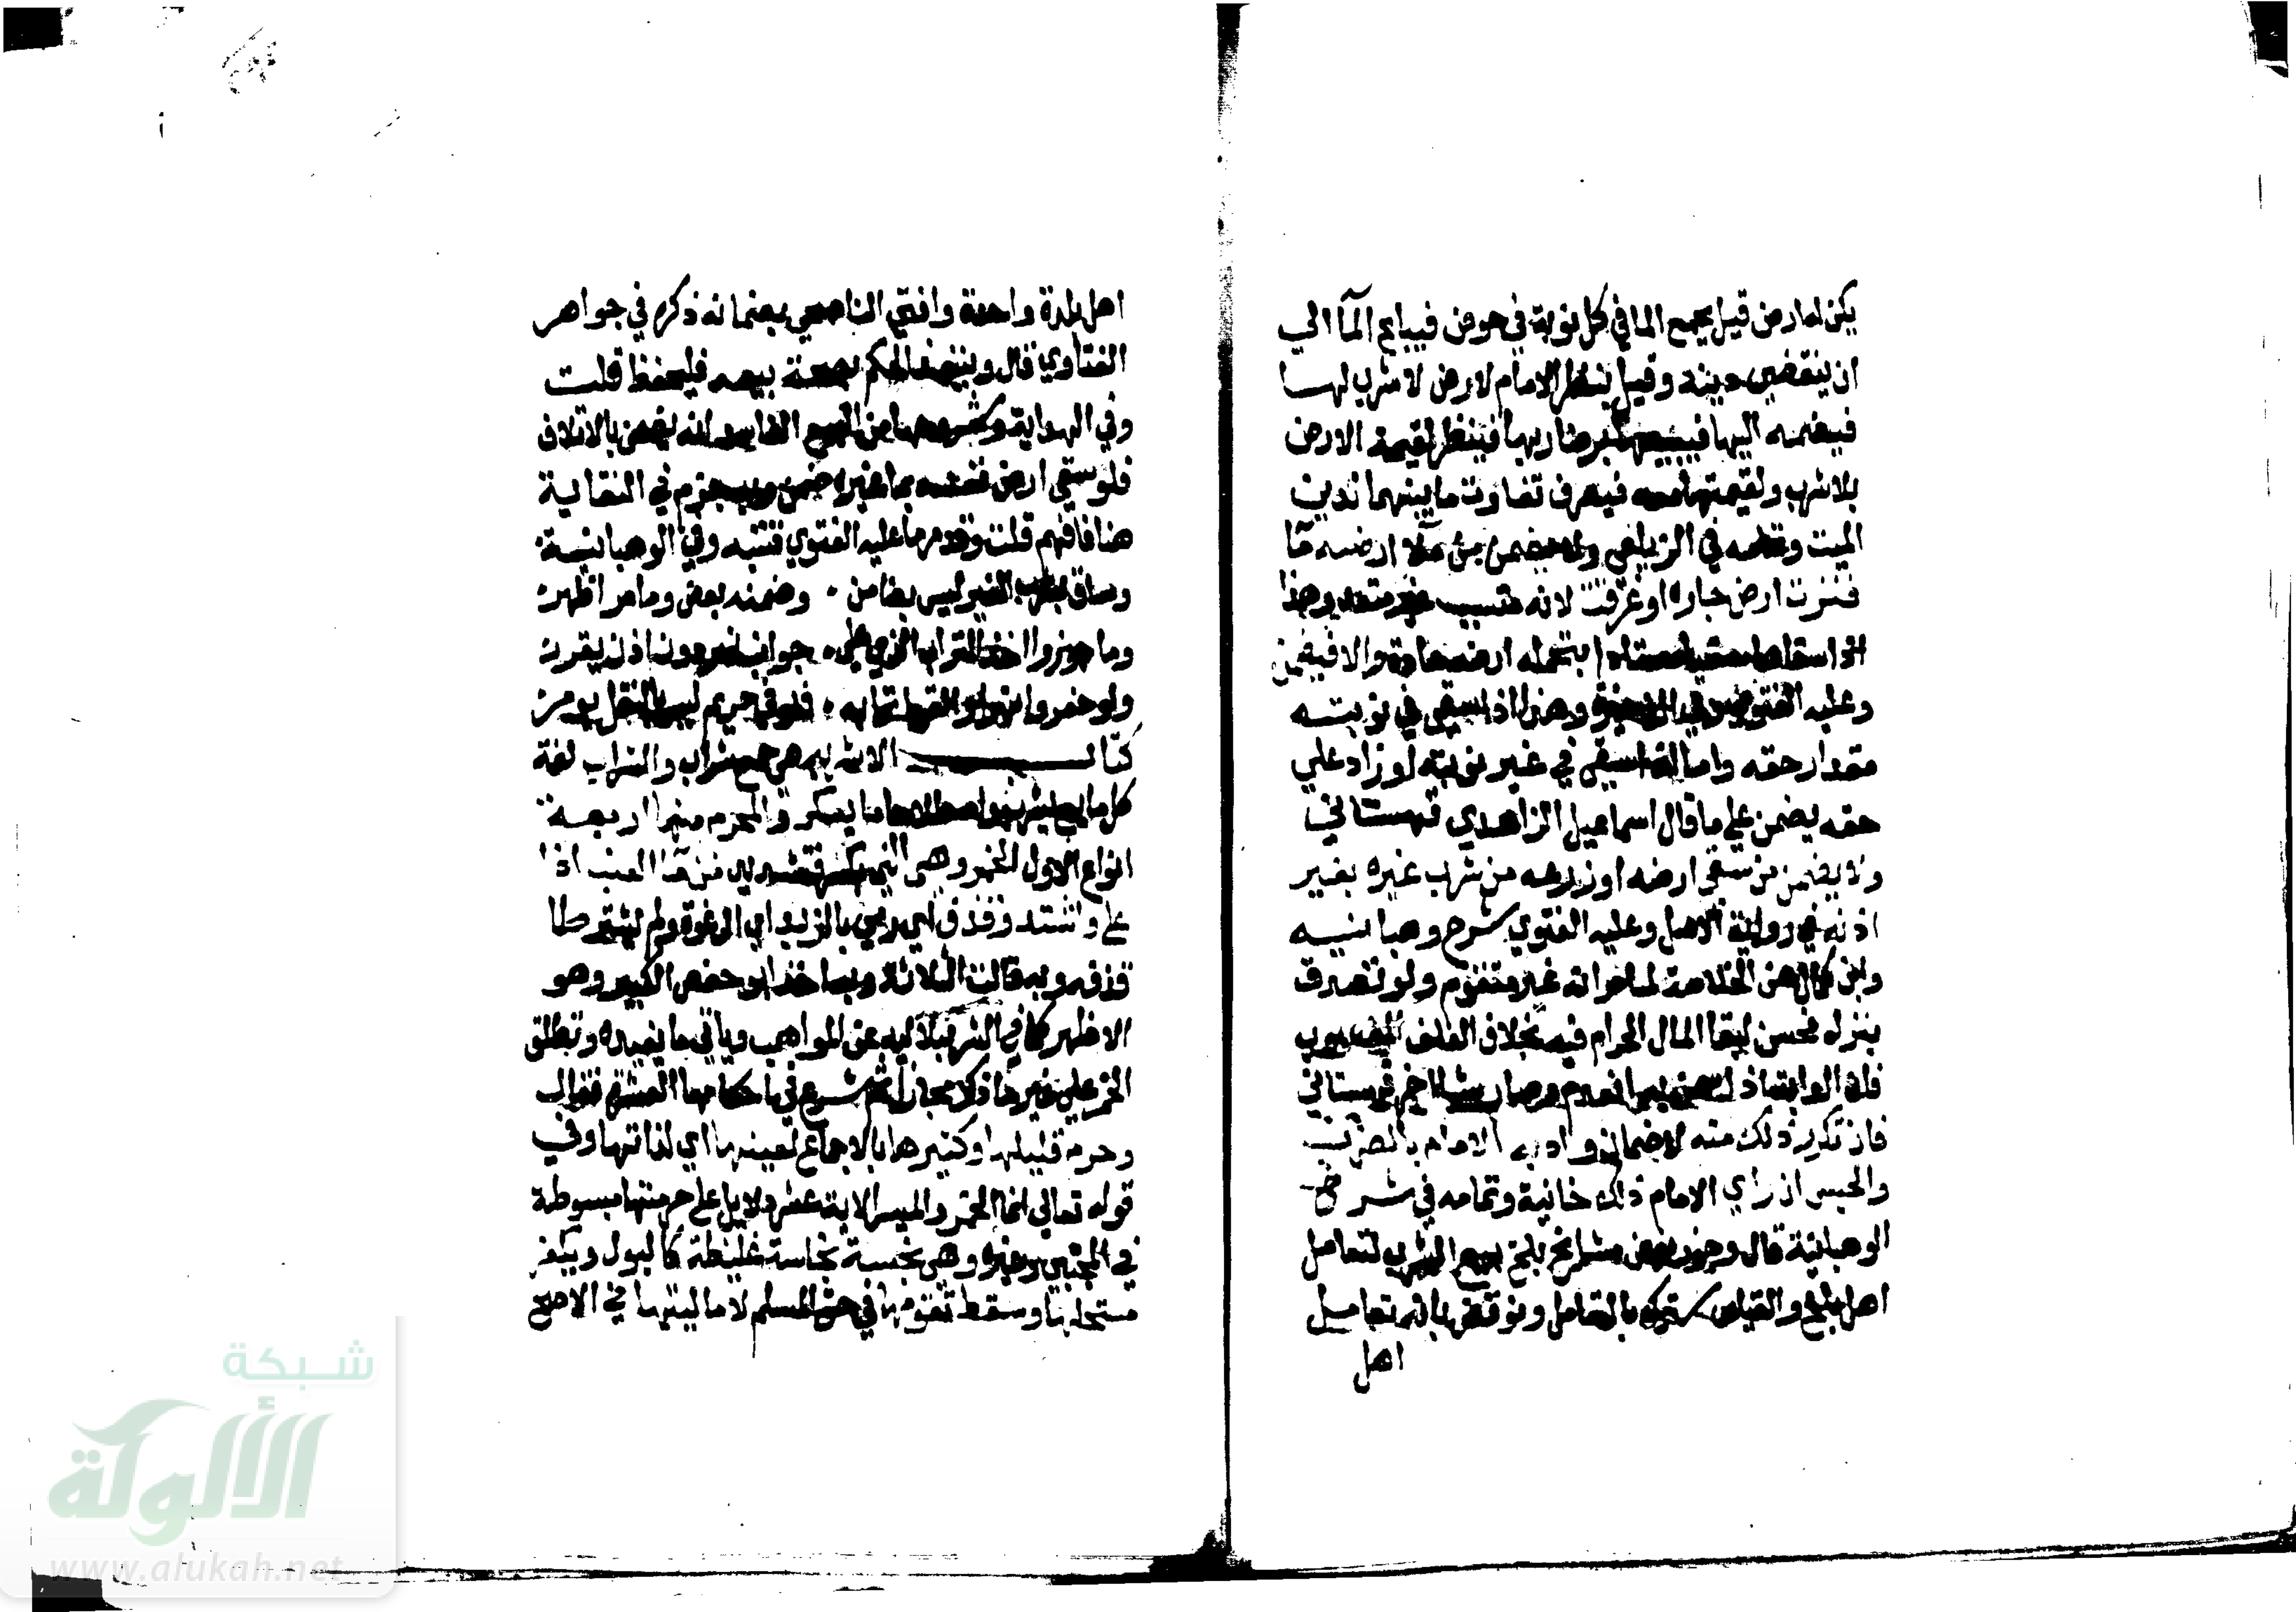 يكن له ارض قيل يجمع الما في كل نوبة في حوض فيباع المآ الي
ان ينقضي دينه وقيل ينظر الامام لارض لا شرب لها
فيضمه اليها فيبيعهما برضا ربها فينظر لقيمة الارض
بلا شرب ولقيمتها معه فيعرف تفاوت ما بينهما لدين
الميت وتمامه في الزيلعي ولا يضمن من ملا ارضه مآ
فنزت ارض جاره او غرقت لانه متسبب غير متعد وهذا
اذا سقاها سقيا معتادا بتحمله ارضه عادة والا فيضمن
وعليه الفتوي وفي الذخيرة وهذا اذا سقي في نوبته
مقدار حقه واما اذا سقي في غير نوبته او زاد علي
حقه يضمن علي ما قال اسماعيل الزاهدي قهستاني
ولا يضمن من سقي ارضه او زرعه من شرب غيره بغير
اذنه في رواية الاصل وعليه الفتوي شرح وهبانيه
وابن كمال عن الخلاصة لما مر انه غير متقوم ولو تصدق
بنزله فحسن لبقا المال الحرام فيه بخلاف العلف المغصوب
فان الدابة اذا سمنت به انعدم وصار شيئا اخر قهستاني
فان تكرر ذلك منه لا ضمان وادبه الامام بالضرب
والحبس ان راي الامام ذلك خانية وتمامه في شرح
الوهبانية قال وجوز بعض مشايخ بلخ بيع الشرب لتعامل
اهل بلخ والقياس يترك بالتعامل ونوقض بانه تعامل
اهل
اهل بلدة واحدة وافتي الناصحي بضمانه ذكره في جواهر
الفتاوي قال وينفذ الحكم بصحة بيعه فليحفظ قلت
وفي الهداية وشروحها من البيع الفاسد انه يضمن بالاتلاف
فلو سقي ارض نفسه بما غيره ضمن وبه جزم في النقاية
هنا فافهم قلت وقد مر ما عليه الفتوي فتنبه وفي الوهبانية
وساق بشرب الغير ليس بضامن . وضمنه بعض وما مر اظهر
وما جوزوا اخذ التراب الذي علي . جوانب نهر دون اذن يقرر
ولو حفروا نهرا والقوا ترابه . فلو في حريم ليس بالنقل يومر
كتاب الاشربه هي جمع شراب والشراب لغة
كل مايع يشرب واصطلاحا ما يسكر والمحرم منها اربعة
انواع الاول الخمر وهي الني بكسر فتشديد من مآ العنب اذا
غلي واشتد وقذف اي رمي بالزبد اي الرغوة ولم يشترطا
قذفه وبه قالت الثلاثة وبه اخذ ابو حفص الكبير وهو
الاظهر كما في الشرنبلاليه عن المواهب وياتي ما يفيده وتطلق
الخمر علي غير ما ذكر مجازا ثم شرع في احكامها العشرة فقال
وحرم قليلها وكثيرها بالاجماع لعينها اي لذاتها وفي
قوله تعالي انما الخمر والميسر الاية عشر دلايل علي حرمتها مبسوطة
في المجتبي وغيره وهي نجسة نجاسة غليظة كالبول ويكفر
مستحلها وسقط تقومها في حق المسلم لا ماليتها في الاصح
شبكة
الألوكة
www.alukah.net